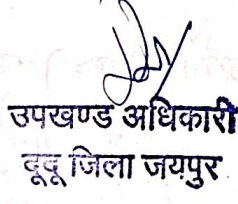 उपखण्ड अधिकारी
दूदू जिला जयपुर